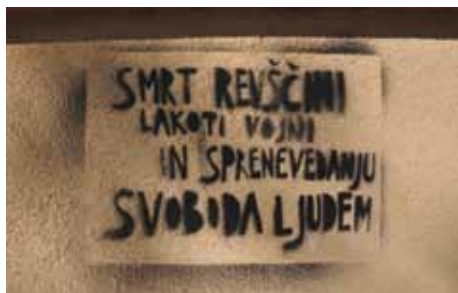 SMRT REVŠČINI
LAKOTI VOJNI
IN SPRENEVEDANJU
SVOBODA LJUDEM